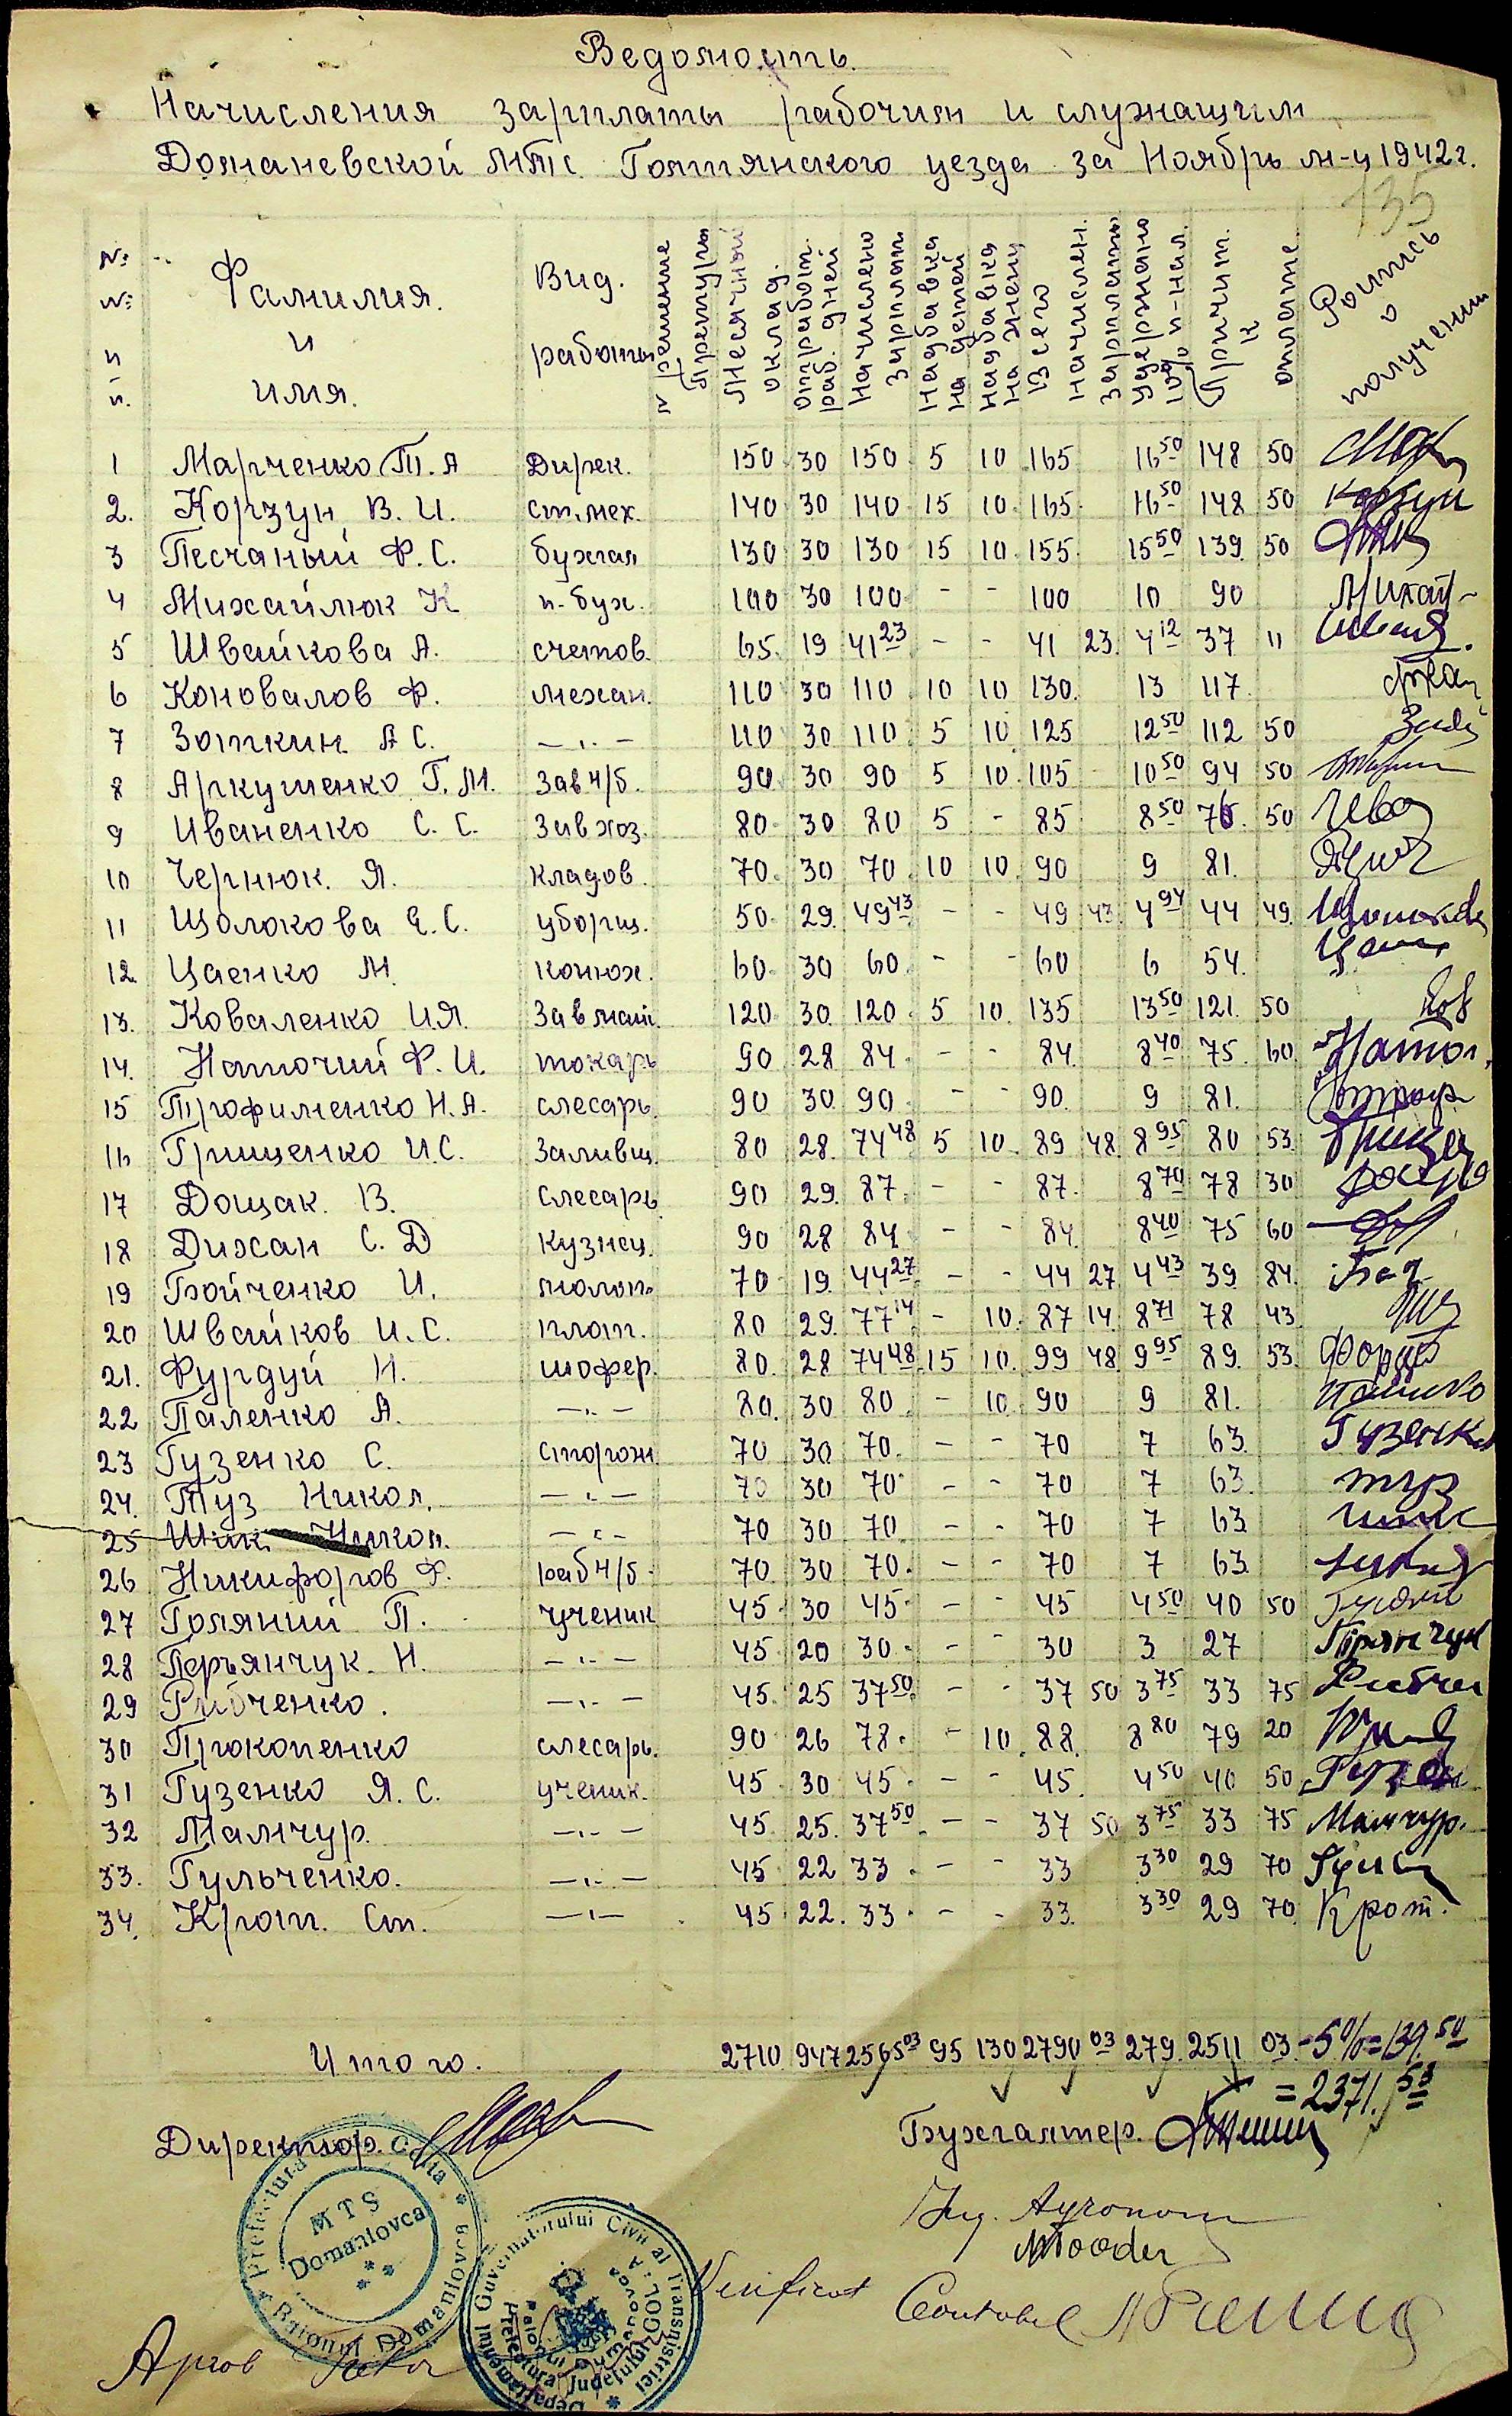 Ведомость.
Начисления зарплаты рабочим и служащим
Доманевской МТС. Голтянского уезда за Ноябрь м-ц 1942 г.
135
№ № п п. Фамилия и имя. Вид. работы Месячный оклад. отработ. раб. дней Начислено зарплат. Надбавка на детей надбавка на жену Всего начислен. зарплаты удержано 10% п-нал. Причит. к оплате. Роспись о получении
1 Марченко Т. А Дирек. 150 30 150 5 10 165 16 50 148 50
2. Корзун В. И. ст. мех. 140 30 140 15 10 165 16 50 148 50 Корзун
3 Песчаный Ф. С. бухгал 130 30 130 15 10 155 15 50 139 50
4 Михайлюк К п-бух. 100 30 100 - - 100 10 90 Михай-
5 Швайкова А. счетов. 65 19 41 23 - - 41 23 4 12 37 11
6 Коновалов Ф. механ. 110 30 110 10 10 130 13 117
7 Зоткин А С. —"— 110 30 110 5 10 125 12 50 112 50
8 Аркушенко Г. М. Зав н/б. 90 30 90 5 10 105 10 50 94 50
9 Иваненко С. С. Завхоз. 80 30 80 5 - 85 8 50 76 50
10 Чернюк. Я. кладов. 70 30 70 10 10 90 9 81
11 Щолокова Е. С. уборщ. 50 29 49 43 - - 49 43 4 94 44 49
12 Цаенко М. конюх. 60 30 60 - - 60 6 54
13. Коваленко И. Я. Зав маш. 120 30 120 5 10 135 13 50 121 50
14. Наточий Ф. И. токарь 90 28 84 - - 84 8 40 75 60 Наточ.
15 Трофименко Н. А. слесарь 90 30 90 - - 90 9 81
16 Грищенко И. С. Заливщ. 80 28 74 48 5 10 89 48 8 95 80 53
17 Дощак. В. слесарь 90 29 87 - - 87 8 70 78 30
18 Дихан С. Д кузнец. 90 28 84 - - 84 8 40 75 60
19 Бойченко И. молот. 70 19 44 27 - - 44 27 4 43 39 84
20 Швайков И. С. плот. 80 29 77 14 - 10 87 14 8 71 78 43
21. Фурдуй Н. шофер. 80 28 74 48 15 10 99 48 9 95 89 53
22 Паленко А. —"— 80 30 80 - 10 90 9 81
23 Гузенко С. сторож. 70 30 70 - - 70 7 63 Гузенко
24. Туз Никол. —"— 70 30 70 - - 70 7 63 туз
25 Шик. Никол. —"— 70 30 70 - - 70 7 63
26 Никифоров Ф. раб н/б. 70 30 70 - - 70 7 63
27 Голяний П. ученик 45 30 45 - - 45 4 50 40 50
28 Перъянчук. Н. —"— 45 20 30 - - 30 3 27
29 Рибченко. —"— 45 25 37 50 - - 37 50 3 75 33 75
30 Прокопенко слесарь. 90 26 78 - 10 88 8 80 79 20
31 Гузенко Я. С. ученик. 45 30 45 - - 45 4 50 40 50
32 Мамчур. —"— 45 25 37 50 - - 37 50 3 75 33 75 Мамчур.
33. Гульченко. —"— 45 22 33 - - 33 3 30 29 70
34. Крот. Ст. —"— 45 22 33 - - 33 3 30 29 70 Крот.
Итого. 2710 947 2565 03 95 130 2790 03 279 2511 03 - 5% = 139. 50
= 2371. 53
Директор.
Бухгалтер.
Prefectura Golta
MTS
Domaniovca
Raionul Domaniovca
Guvernamântului Civil al Transnistriei
Prefectura Județului
Ing. Agronom
Verificat Contabil